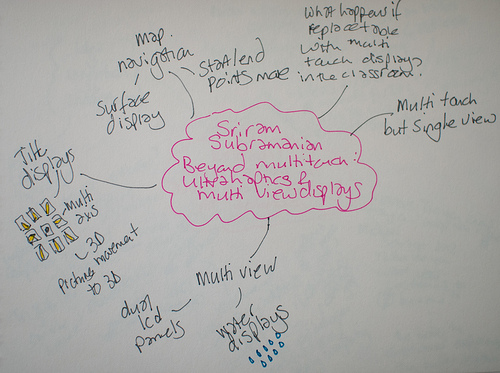 Sriram
Subramanian
Beyond multitouch:
Ultrahaptics &
multi view displays
map
navigation
Surface
display
Start/end
points made
What happens if
replace table
with multi
touch displays
in the classroom.
Multi touch
but single view
Tilt
displays
multi
axis
3D
movement
Pictures
to 3D
Multi view
dual
lcd
panels
water
displays